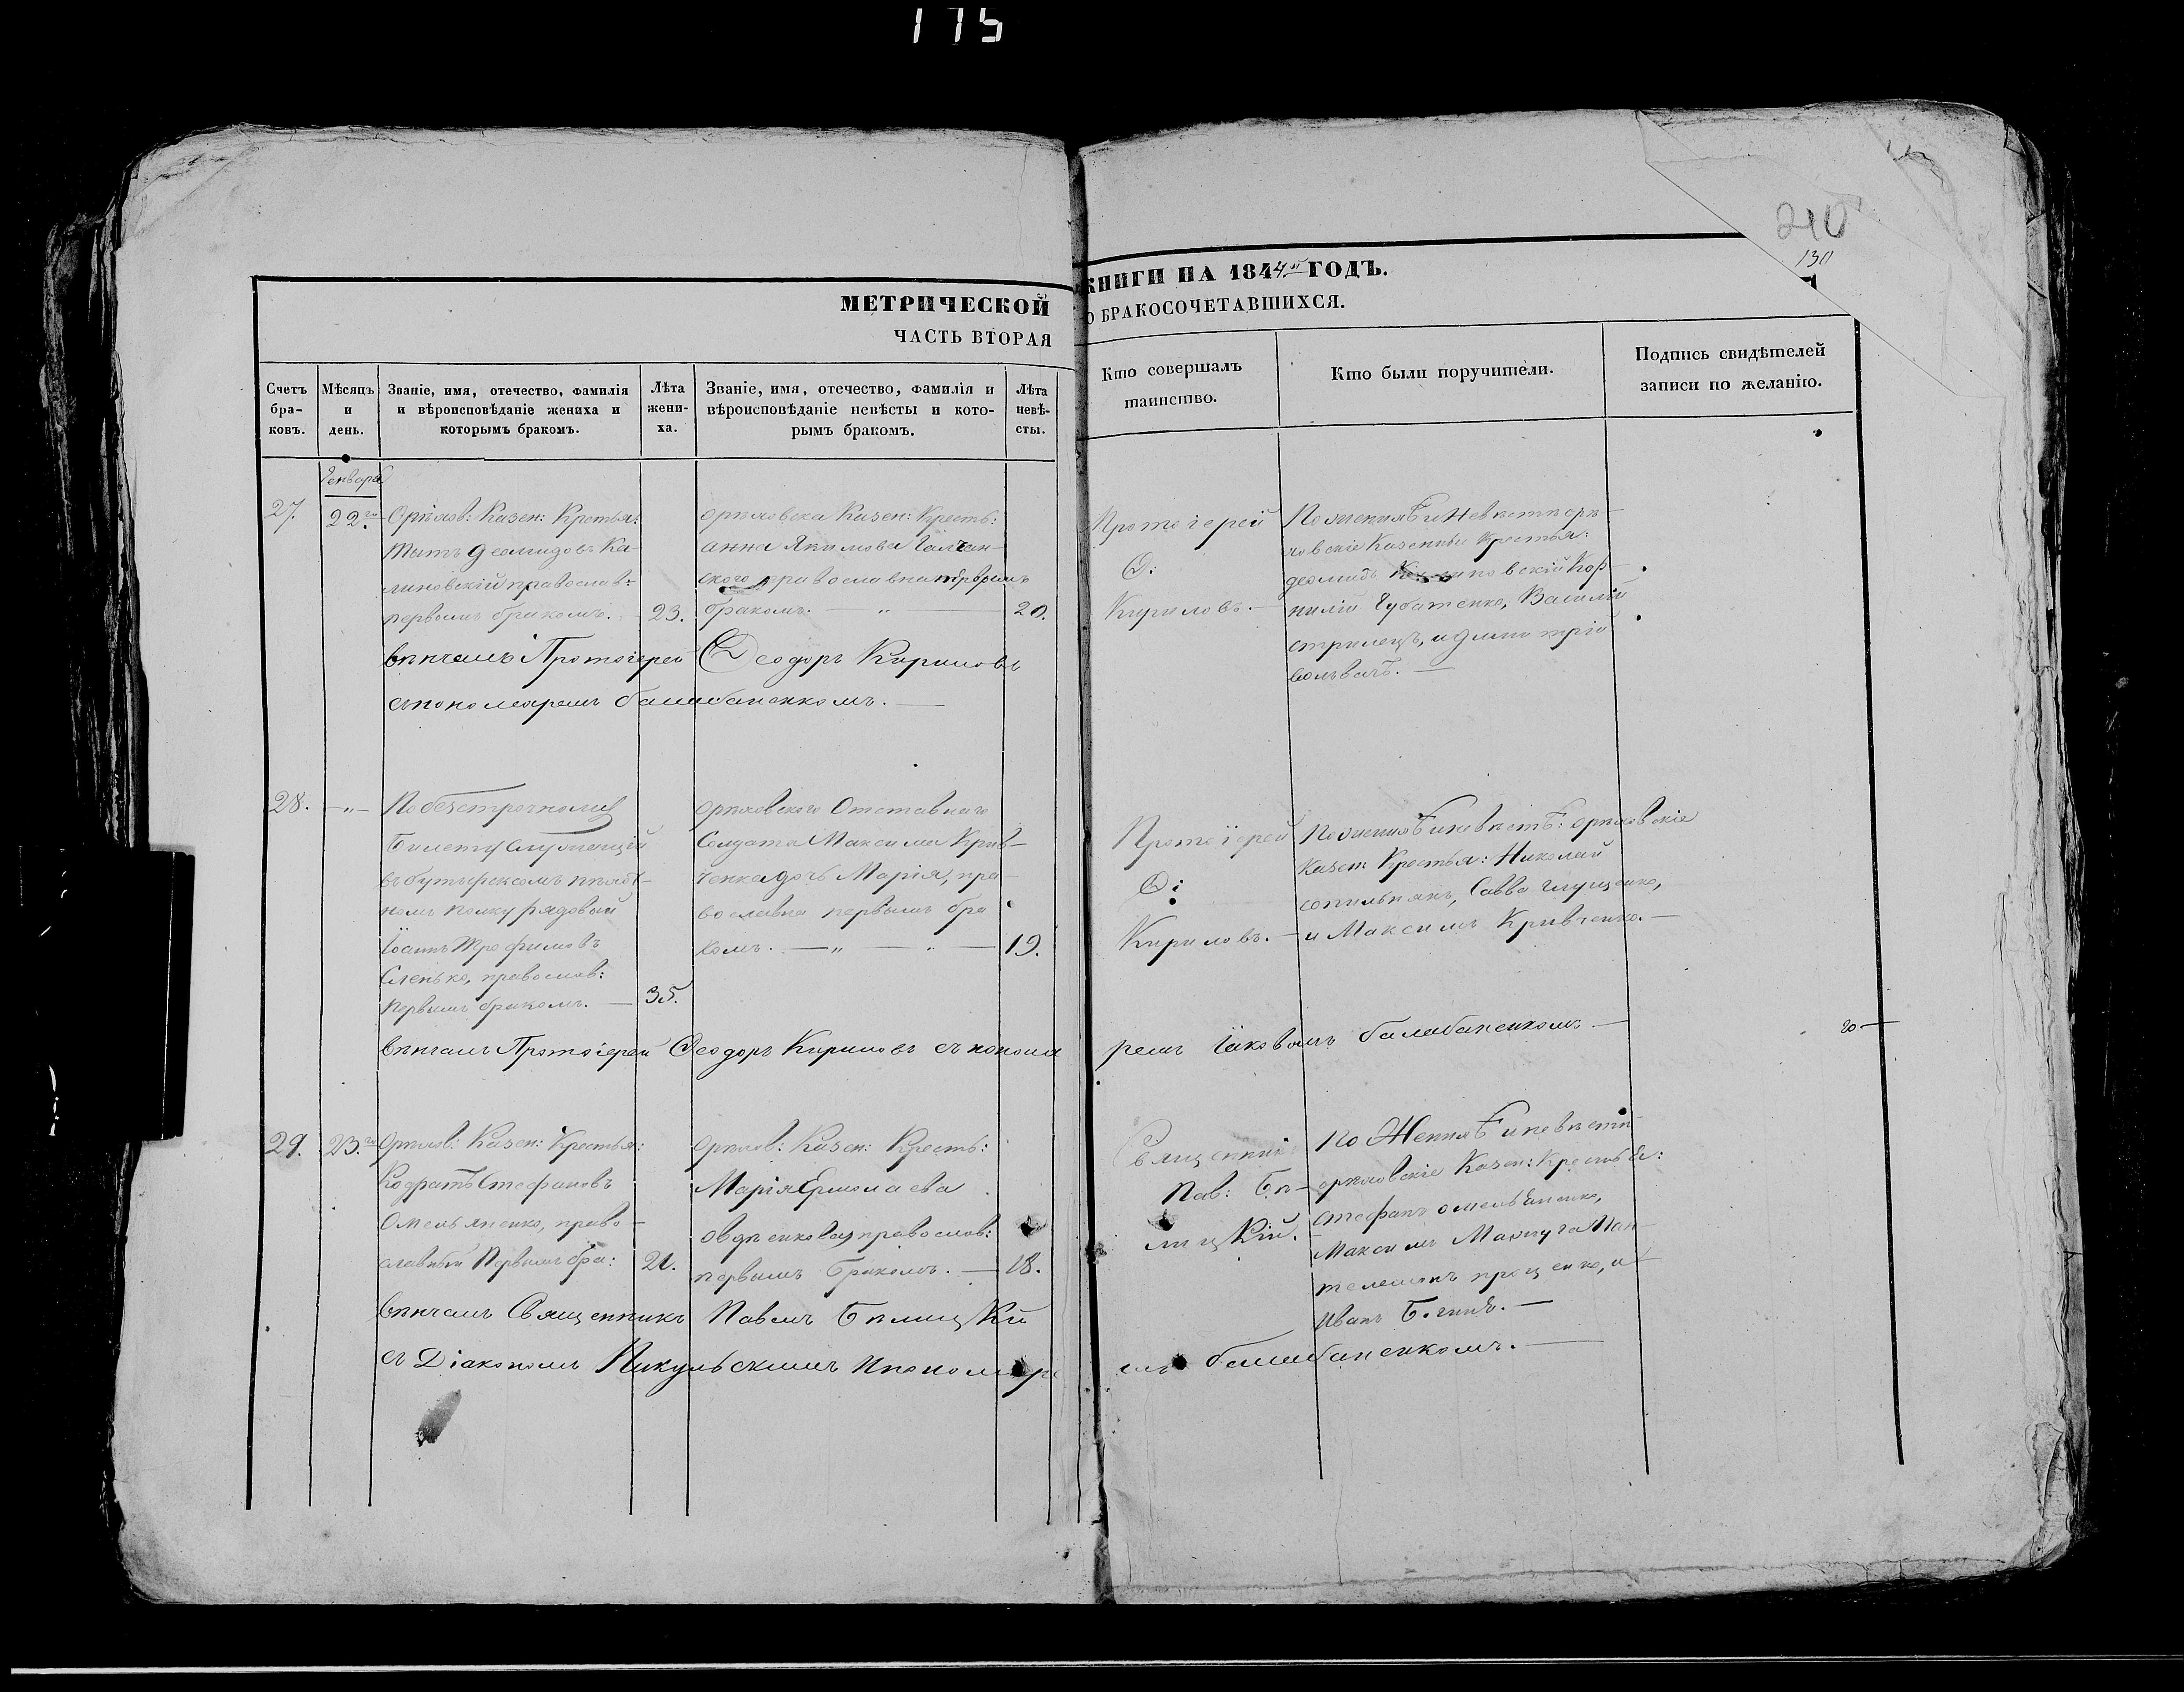 115
210
130
МЕТРИЧЕСКОЙ
КНИГИ НА 1844й ГОДЪ.
ЧАСТЬ ВТОРАЯ
О БРАКОСОЧЕТАВШИХСЯ.
Счетъ браковъ.
Мѣсяцъ и день.
Званіе, имя, отечество, фамилія и вѣроисповѣданіе жениха и которымъ бракомъ.
Лѣта жениха.
Званіе, имя, отечество, фамилія и вѣроисповѣданіе невѣсты и которымъ бракомъ.
Лѣта невѣсты.
Кто совершалъ таинство.
Кто были поручители.
Подпись свидѣтелей записи по желанію.
Генваря
27.
22го
Орѣхов: Казен: Крестья:
Титъ Деомидовъ Ка-
линовскій православ:
первымъ бракомъ. — 23.
орѣховска Казен: Кресть:
анна Якимова
православна первымъ
бракомъ. „ — 20.
Протоіерей
Ѳ:
Кириловъ. —
По женихѣ и Невѣстѣ орѣ-
ховскіе Казенные Крестья:
деомидъ Калиновскій Кор-
нилій Губатенко, Василій
стрилецъ, и дими трій
—
вѣнчалъ Протоіерей Ѳеодоръ Кириловъ
съ пономаремъ балабаненкомъ. —
28.
— „ —
По безсрочному
билету служащій
въ бутырскомъ пѣхот-
номъ полку рядовый
Іоаннъ Трофимовъ
Сленько, православ:
первымъ бракомъ. — 35.
орѣховского Отставнаго
Солдата Максима Крив-
ченка дочь Марія, пра-
вославна первымъ бра
комъ. — „ — „ — 19.
Протоіерей
Ѳ:
Кириловъ. —
По женихѣ и невѣстѣ: орѣховскіе
Казен: Крестья: Николай
сопильнякъ, Савва глущенко,
и Максимъ Кривченко. —
вѣнчалъ Протоіерей Ѳеодоръ Кириловъ съ понома
ремъ Іаковомъ балабаненкомъ. —
29.
23.го
Орѣхов: Казен: Крестья:
Кодратъ Стефановъ
Омельяненко, право-
славный Первымъ бра: 21.
Орѣхов: Казен: Кресть:
Марія Ермолаева
овдѣенкова православ:
первымъ бракомъ. — 18.
Священникъ
Пав: Бѣ-
лицкій. —
По Женихѣ и невѣстѣ
орѣховскіе Казен: Крестья:
стефанъ омельяненко,
Максимъ
проценко, и
иванъ
вѣнчалъ Священникъ Павелъ Бѣлицкій
съ Діакономъ Никульскимъ и пономаре
мъ балабаненкомъ. —